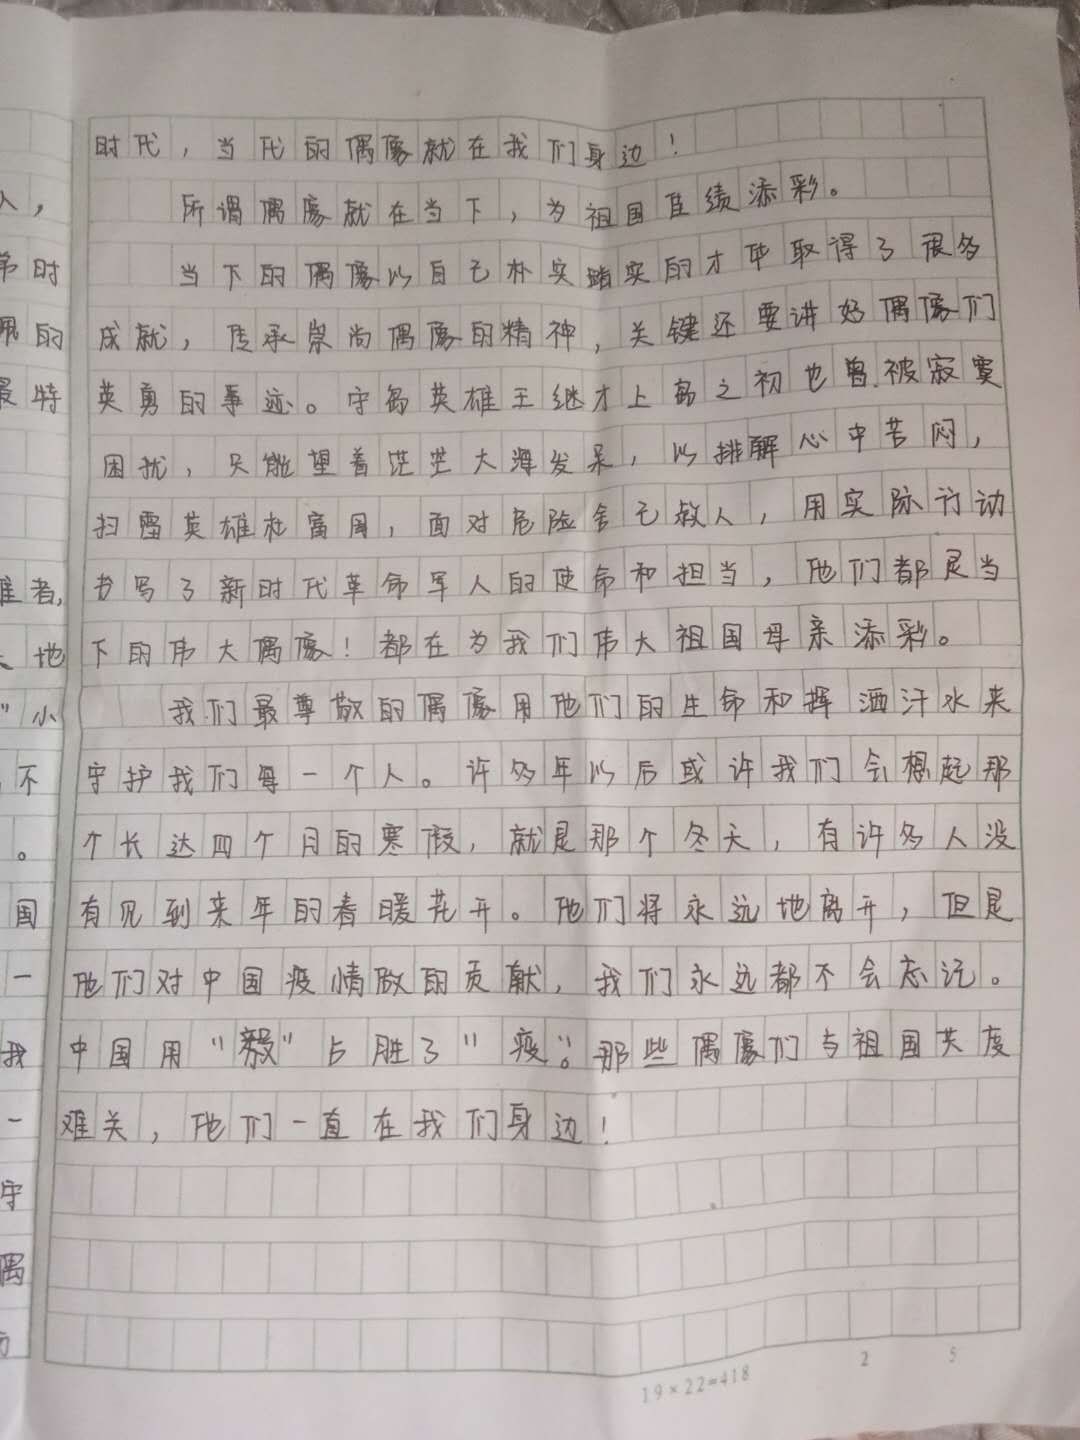 时代，当代的偶像就在我们身边！
所谓偶像就在当下，为祖国佳绩添彩。
当下的偶像以自己朴实踏实的才华取得了很多
成就，传承崇尚偶像的精神，关键还要讲好偶像们
英勇的事迹。守岛英雄王继才上岛之初也曾被寂寞
困扰，只能望着茫茫大海发呆，以排解心中苦闷，
扫雷英雄杜富国，面对危险舍己救人，用实际行动
书写了新时代革命军人的使命和担当，他们都是当
下的伟大偶像！都在为我们伟大祖国母亲添彩。
我们最尊敬的偶像用他们的生命和挥洒汗水来
守护我们每一个人。许多年以后或许我们会想起那
个长达四个月的寒假，就是那个冬天，有许多人没
有见到来年的春暖花开。他们将永远地离开，但是
他们对中国疫情做的贡献，我们永远都不会忘记。
中国用“毅”占胜了“疫”。那些偶像们与祖国共度
难关，他们一直在我们身边！
人，
时
的
最特
者,
地
”小
不
。
国
一
我
一
守
偶
19×22=418
2 5